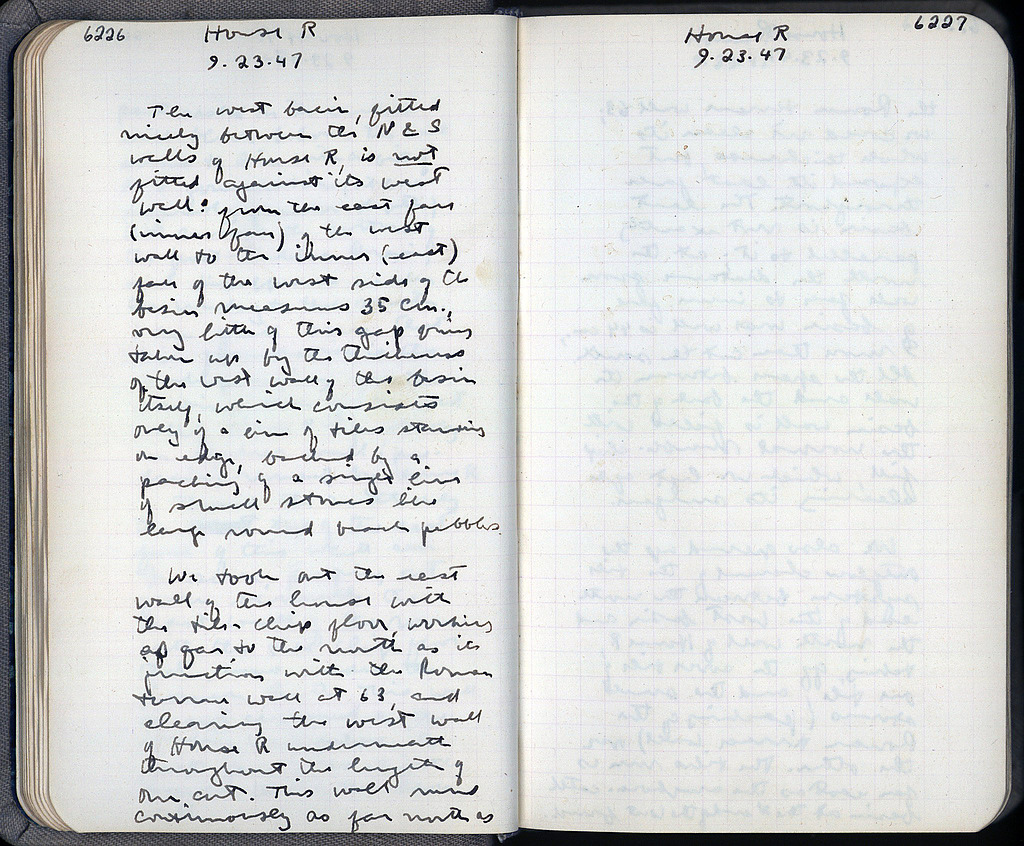 6226
House R
9.23.47
The west basin, fitted
nicely between the N & S
walls of House R, is not
fitted against its west
wall: from the east face
(inner face) of the west
wall to the inner (east)
face of the west side of the
basin measures 35 cm.,
very little of this gap being
taken up by the thickness
of the west wall of the basin
itself, which consists
only of a line of tiles standing
on edge, backed by a
packing of a single line
of small stones like
large round beach pebbles.
We took out the east
wall of the house with
the tile-chip floor, working
as far to the north as its
junction with the Roman
terrace wall at 63, and
clearing the west wall
of House R underneath
throughout the length of
our cut. This wall runs
continuously as far north as
6227
House R
9.23.47